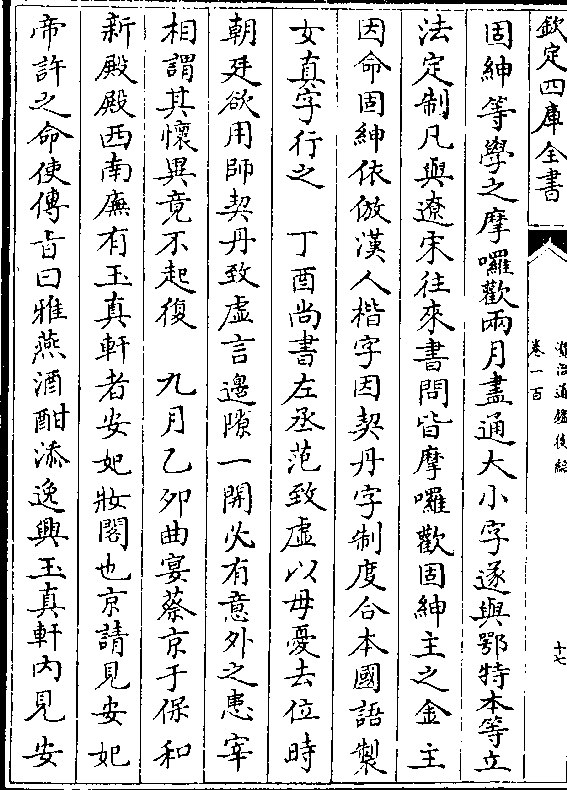 欽定四庫全書
資治通鑑後編
卷一百
十七
固紳等學之摩囉歡兩月盡通大小字遂與鄂特本等立
法定制凡與遼宋往來書問皆摩囉歡固紳主之金主
因命固紳依倣漢人楷字因契丹字制度合本國語製
女真字行之　丁酉尚書左丞范致虛以母憂去位時
朝廷欲用師契丹致虛言邊隙一開必有意外之患宰
相謂其懷異竟不起復　九月乙夘曲宴蔡京于保和
新殿殿西南廡有玉真軒者安妃妝閣也京請見安妃
帝許之命使傳旨曰雅燕酒酣添逸興玉真軒內見安